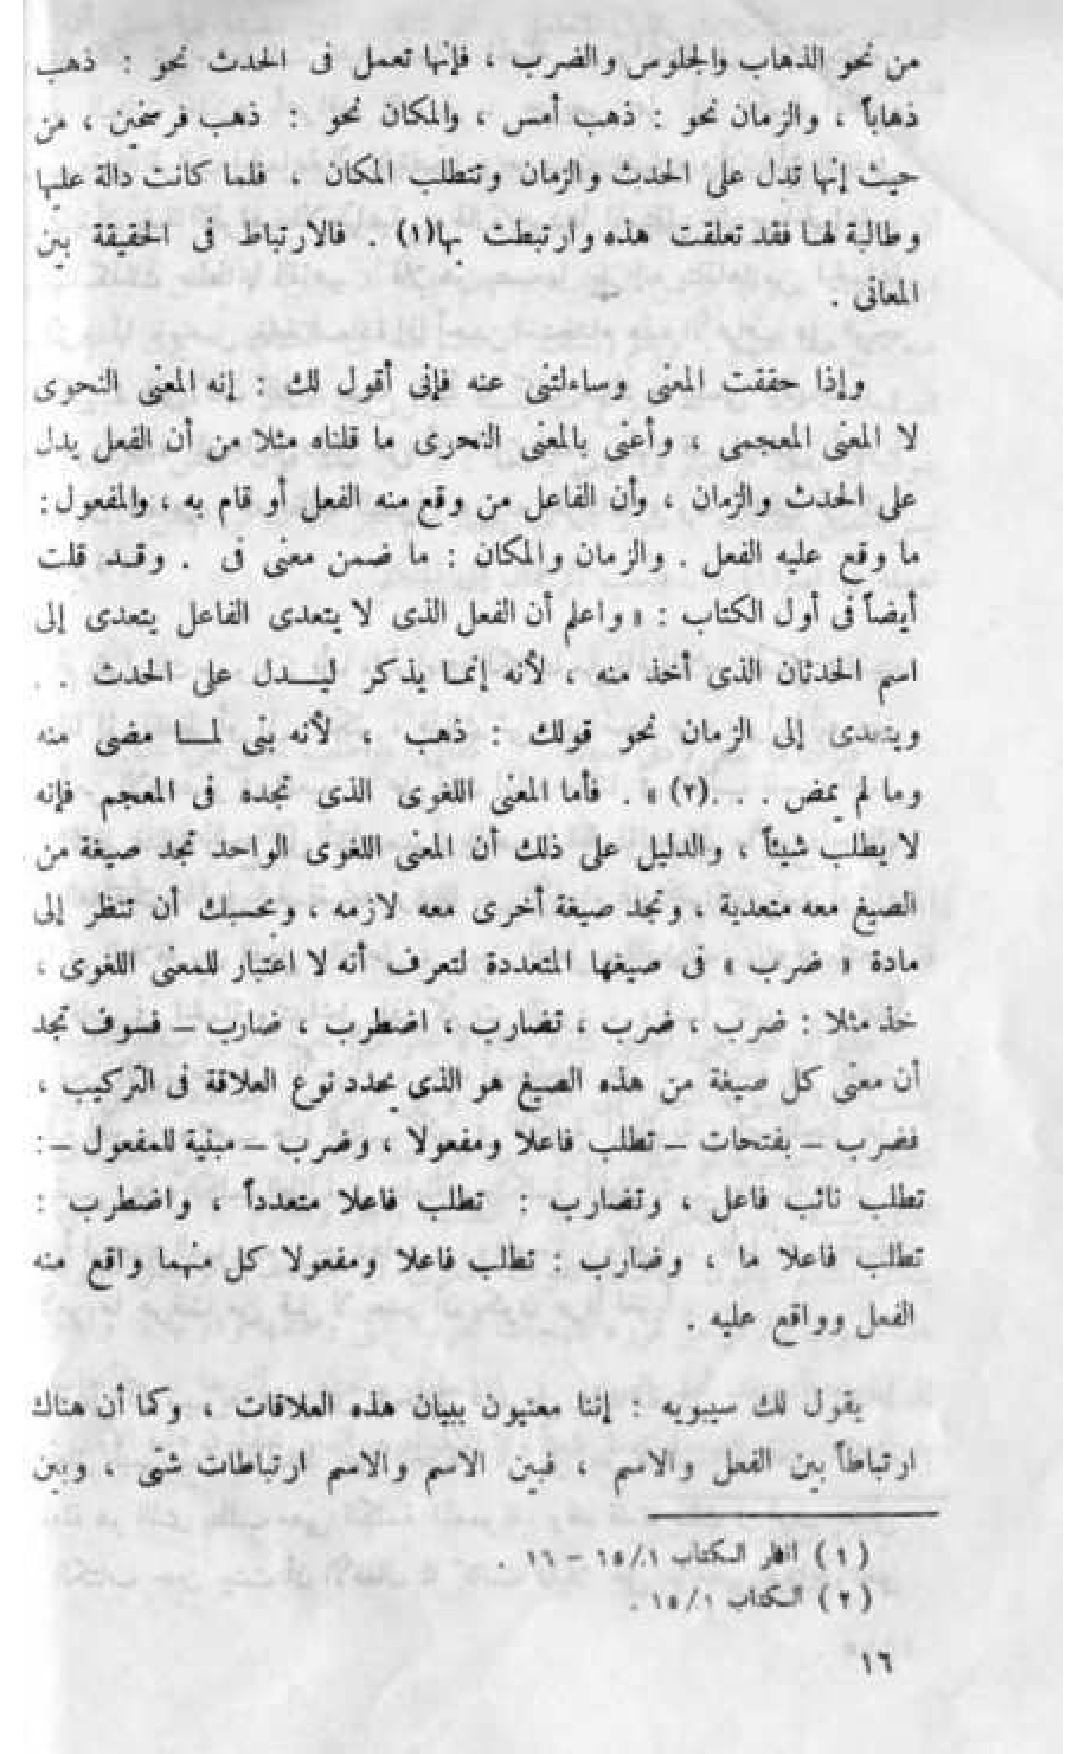 من نحو الذهاب والجلوس والضرب ، فإنها تعمل فى الحدث نحو : ذهب
ذهاباً ، والزمان نحو : ذهب أمس ، والمكان نحو : ذهب فرسخين ، من
حيث إنها تدل على الحدث والزمان وتتطلب المكان ، فلما كانت دالة عليها
وطالبة لها فقد تعلقت هذه وارتبطت بها(١) . فالارتباط فى الحقيقة بين
المعانى .
وإذا حققت المعنى وساءلتنى عنه فإنى أقول لك : إنه المعنى النحوى
لا المعنى المعجمى ، وأعنى بالمعنى النحوى ما قلناه مثلا من أن الفعل يدل
على الحدث والزمان ، وأن الفاعل من وقع منه الفعل أو قام به ، والمفعول :
ما وقع عليه الفعل . والزمان والمكان : ما ضمن معنى فى . وقد قلت
أيضاً فى أول الكتاب : « واعلم أن الفعل الذى لا يتعدى الفاعل يتعدى إلى
اسم الحدثان الذى أخذ منه ، لأنه إنما يذكر ليدل على الحدث . .
ويتعدى إلى الزمان نحو قولك : ذهب ، لأنه بنى لما مضى منه
وما لم يمض . . .(٢) » . فأما المعنى اللغوى الذى تجده فى المعجم فإنه
لا يطلب شيئاً ، والدليل على ذلك أن المعنى اللغوى الواحد تجد صيغة من
الصيغ معه متعدية ، وتجد صيغة أخرى معه لازمه ، وبحسبك أن تنظر إلى
مادة « ضرب » فى صيغها المتعددة لتعرف أنه لا اعتبار للمعنى اللغوى ،
خذ مثلا : ضرب ، ضرب ، تضارب ، اضطرب ، ضارب – فسوف تجد
أن معنى كل صيغة من هذه الصيغ هو الذى يحدد نوع العلاقة فى التركيب ،
فضرب – بفتحات – تطلب فاعلا ومفعولا ، وضرب – مبنية للمفعول – :
تطلب نائب فاعل ، وتضارب : تطلب فاعلا متعدداً ، واضطرب :
تطلب فاعلا ما ، وضارب : تطلب فاعلا ومفعولا كل منهما واقع منه
الفعل وواقع عليه .
يقول لك سيبويه : إننا معنيون ببيان هذه العلاقات ، وكما أن هناك
ارتباطاً بين الفعل والاسم ، فبين الاسم والاسم ارتباطات شتى ، وبين
(١) انظر الكتاب ١/١٥ – ١٦ .
(٢) الكتاب ١/١٥ .
١٦